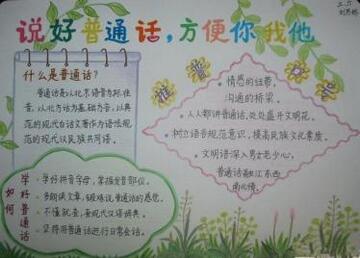 说好普通话,方便你我他
什么是普通话?
普通话是以北京语音为标准
音,以北方话为基础方言,以典
范的现代白话文著作为语法规
范的现代汉民族共同语。
推普
情感的纽带,
沟通的桥梁。
人人都讲普通话,处处盛开文明花。
树立语言规范意识,提高民族文化素质。
文明语深入男女老少心,
普通话融汇东西
南北情。
如何学好普通话
学好拼音字母,掌握发音部位。
多朗读文章,锻炼说普通话的感觉。
不懂就查,查现代汉语辞典。
坚持用普通话进行日常会话。